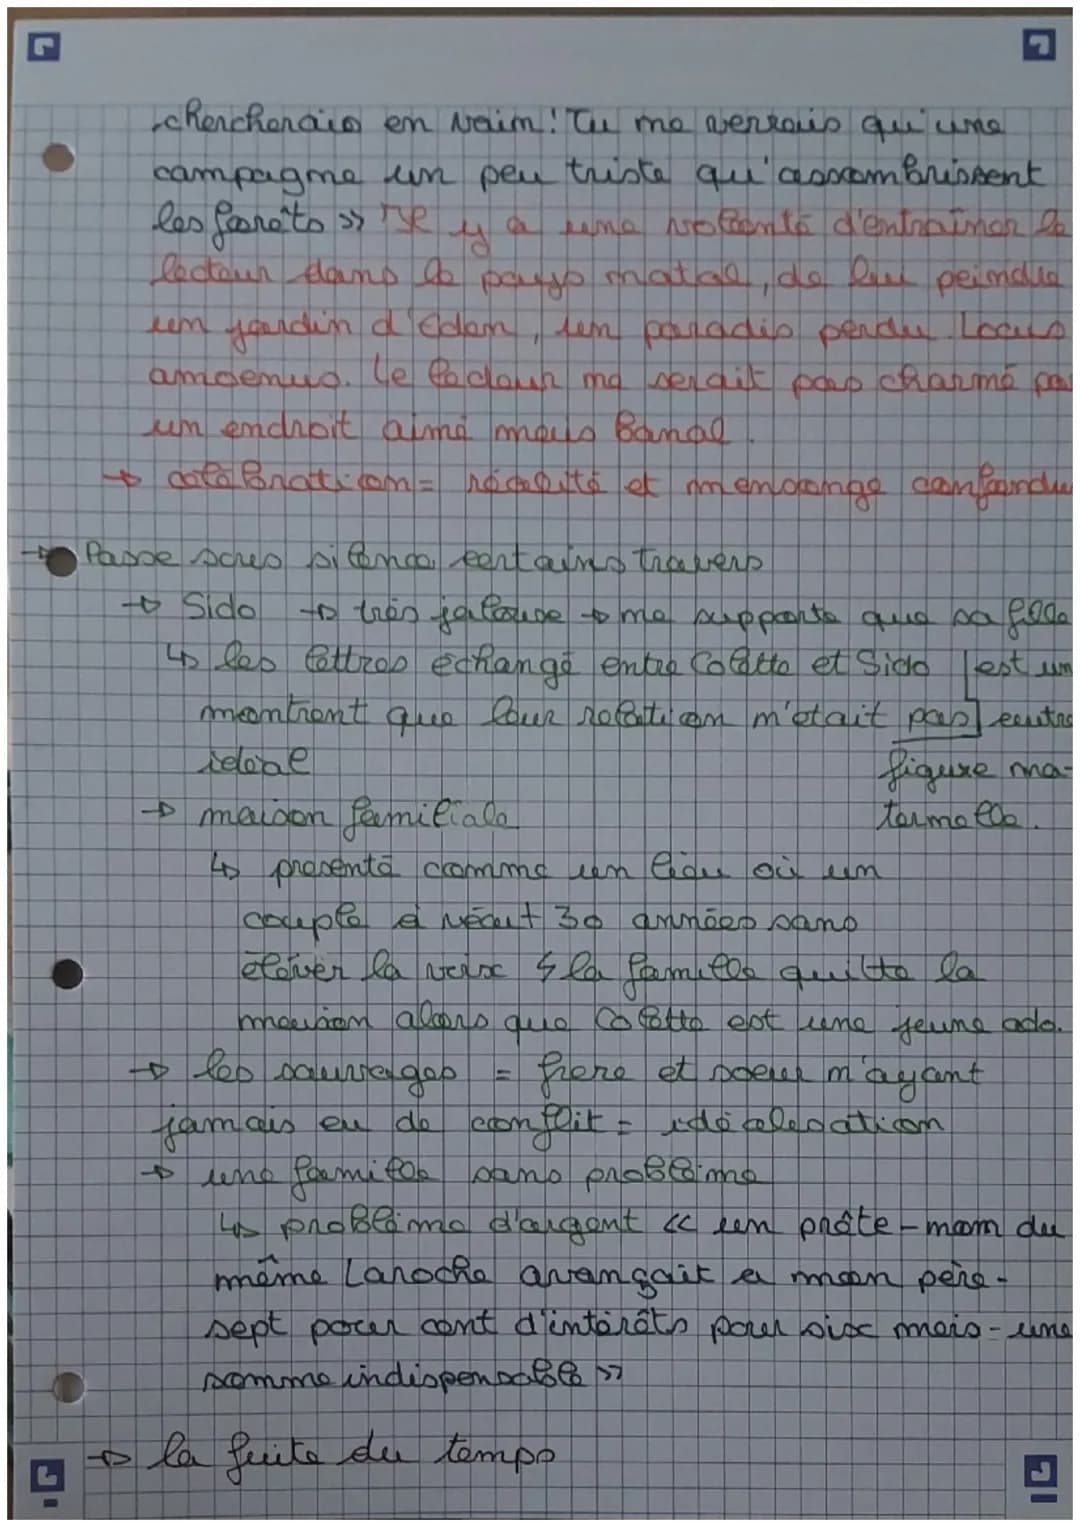 chercherais en vain! Tu me verrais qu'une
campagne un peu triste qu'assombrissent
les forêts » Il y a une volonté d'entraîner le
lecteur dans le pays natal, de lui peindre
un jardin d'Edem, un paradis perdu. Locus
amoenus. Le lecteur ne serait pas charmé pa
un endroit aimé mais banal.
→ = réalité et mensonge confondu
→ Passe sous silence certains travers
→ Sido → très jalouse → ne supporte que sa fille
↳ les lettres échangé entre Colette et Sido [est un
montrent que leur relation n'était pas] eutre
idéal figure ma-
→ maison familiale ternelle.
↳ présenté comme un lieu où un
couple à vécut 30 années sans
élever la voix ↯ la famille quitte la
maison alors que Colette est une jeune ado.
→ les sauvages = frère et soeur n'ayant
jamais eu de conflit = idéalisation
→ une famille sans problème
↳ problème d'argent « un prête-nom du
même Laroche avançait a mon père-
sept pour cent d'intérêts pour six mois-une
somme indispensable »
→ la fuite du temps